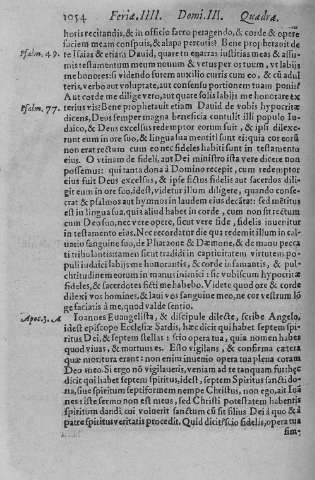 1054 Feriæ. IIII. Domi. III. Quadra.
horis recitandis, & in officio sacro peragendo, & corde & opere
faciem meam conspuis, & alapa percutis? Bene prophetaui de
Psalm. 49. te Isaias & etiam Dauid, quare tu enarras iustitias meas & assu-
mis testamentum meum nouum & vetus per os tuum, vt labijs
me honores: si videndo furem auxilio curris cum eo, & cū adul
teris, verbo aut voluptate, aut consensu portionem tuam ponis?
Aut corde me dilige vero, aut quare solis labijs me honorare ex
Psalm. 77. terius vis? Bene prophetauit etiam Dauid de vobis hypocritæ
dicens, Deus semper magna beneficia contulit illi populo Iu-
daico, & Deus excelsus redemptor eorum fuit, & ipsi dilexe-
runt eum in ore suo, & lingua sua mentiti sunt ei quia cor eorū
non erat rectum cum eo nec fideles habiti sunt in testamento
eius. O vtinam de fideli, aut Dei ministro ista vere dicere non
possemus: qui tanta dona à Domino recepit, cum redemptor
eius fuit Deus excelsus, & ipse fictus fidelis aut sacerdos dili-
git eum in ore suo, idest, videtur illum diligere, quando conse-
crat & psalmos aut hymnos in laudem eius decātat: sed mētitus
est in lingua sua, quia aliud habet in corde, cum non sit rectum
cum Deo suo, nec vere opere, sicut vere fide, fidelis inuenitur
in testamento eius. Nec recordatur die qua redemit illum in cal-
uatio sanguine suo, de Pharaone & Dæmone, & de manu pecca
ti tribulantis: tamen sicut tradidi in captiuitatem virtutem po-
puli iudaici labijs me honorantis, & corde infamantis, & pul-
chritudinem eorum in manus inimici: sic vobiscum hypocritæ
fideles, & sacerdotes ficti me habebo. Videte quod ore & corde
dilexi vos homines, & laui vos sanguine meo, ne cor vestrum lō
ge faciatis à me, quod valde sentio.
Apoc. 3. A Ioannes Euangelista, & discipule dilecte, scribe Angelo,
idest episcopo Ecclesiæ Sardis, hæc dicit qui habet septem spi-
ritus Dei, & septem stellas: scio opera tua, quia nomen habes
quod viuas, & mortuus es. Esto vigilans, & confirma cætera
quæ moritura erant: non enim inuenio opera tua plena coram
Deo meo. Si ergo nō vigilaueris, veniam ad te tanquam fur: hęc
dicit qui habet septem spiritus, idest, septem Spiritus sancti do-
na, siue spiritum septiformem nempe Christus, non ego, ait Ioā
nes: iste sermo non est meus, sed Christi potestatem habentis
spiritum dandi, cui voluerit sanctum cū sit filius Dei à quo & à
patre spiritus veritatis procedit. Quid dicit? scio fidelis, opera tua
sim-